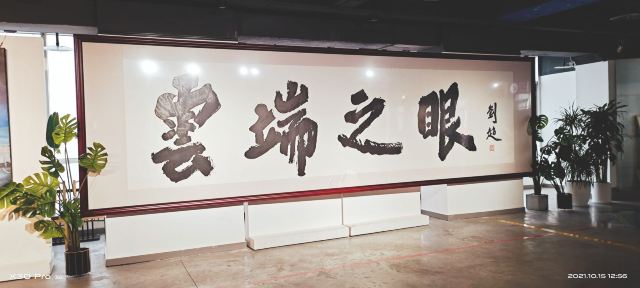 雲端之眼
劉
X30 Pro
2021.10.15 12:56